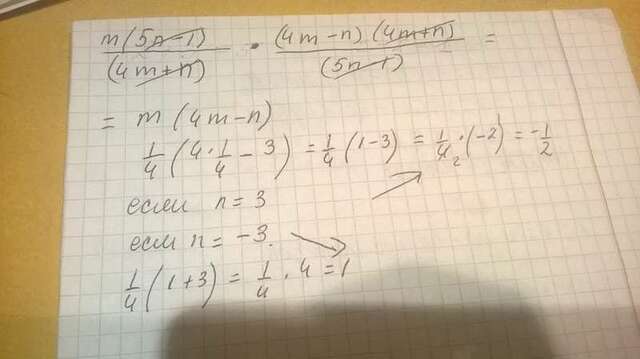 m(5n-1)/(4m+n) · (4m-n)(4m+n)/(5n-1) =
= m(4m-n)
1/4(4·1/4-3) = 1/4(1-3) = 1/4₂·(-2) = -1/2
если n = 3
если n = -3.
1/4(1+3) = 1/4·4 = 1